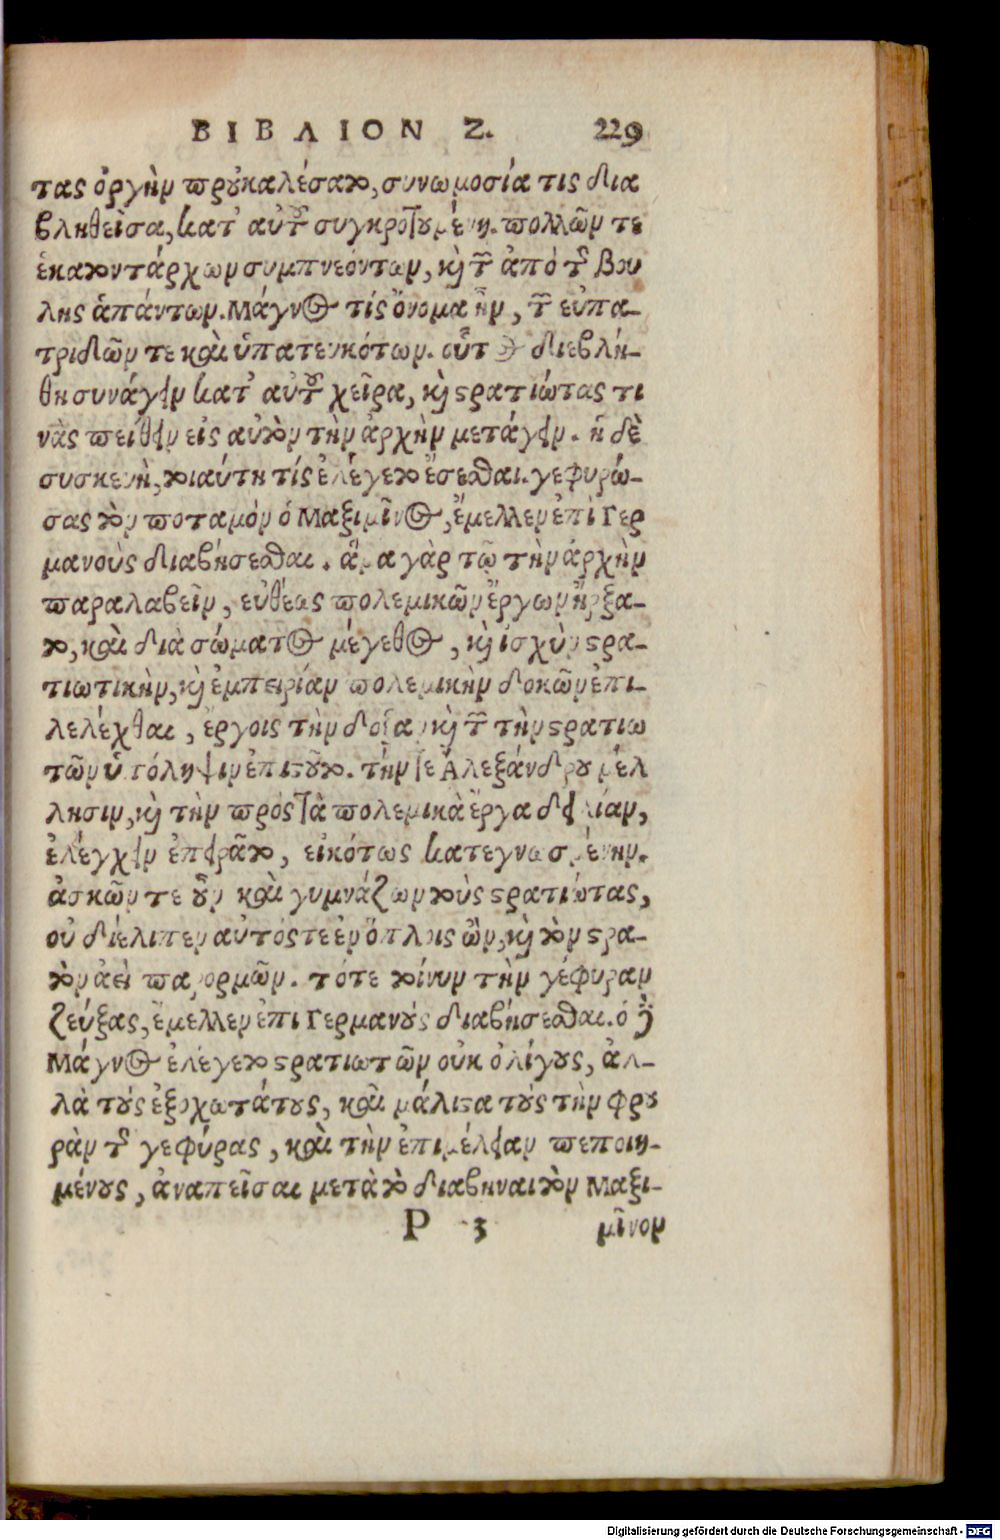 ΒΙΒΛΙΟΝ Ζ. 229
τας ὀργὴν προὐκαλέσατο, συνωμοσία τις δια
βληθεῖσα, κατ' αὐτοῦ συγκροτουμένη. πολλῶν τε
ἑκατοντάρχων συμπνεόντων, καὶ τῶν ἀπὸ τῆς βου
λῆς ἁπάντων. Μάγνος τίς ὄνομα ἦν, τῶν εὐπα-
τριδῶν τε καὶ ὑπατευκότων. οὗτος διεβλή-
θη συνάγειν κατ' αὐτοῦ χεῖρα, καὶ στρατιώτας τι
νὰς πείθειν εἰς αὐτὸν τὴν ἀρχὴν μετάγειν. ἡ δὲ
συσκευὴ, τοιαύτη τίς ἐλέγετο ἔσεσθαι. γεφυρώ-
σας τὸν ποταμὸν ὁ Μαξιμῖνος, ἔμελλεν ἐπὶ Γερ
μανοὺς διαβήσεσθαι. ἅμα γὰρ τῷ τὴν ἀρχὴν
παραλαβεῖν, εὐθέως πολεμικῶν ἔργων ἤρξα-
το, καὶ διὰ σώματος μέγεθος, καὶ ἰσχὺν στρα-
τιωτικὴν, καὶ ἐμπειρίαν πολεμικὴν δοκῶν ἐπι-
λελέχθαι, ἔργοις τὴν δόξαν καὶ τῶν τὴν στρατιω
τῶν ὑπόληψιν ἐπιστοῦτο. τήν τε Ἀλεξάνδρου μέλ
λησιν, καὶ τὴν πρὸς τὰ πολεμικὰ ἔργα δειλίαν,
ἐλέγχειν ἐπειρᾶτο, εἰκότως κατεγνωσμένην.
ἀσκῶν τε οὖν καὶ γυμνάζων τοὺς στρατιώτας,
οὐ διέλιπεν αὐτός τε ἐν ὅπλοις ὢν, καὶ τὸν στρα-
τὸν ἀεὶ παρορμῶν. τότε τοίνυν τὴν γέφυραν
ζεύξας, ἔμελλεν ἐπι Γερμανούς διαβήσεσθαι. ὁ δὲ
Μάγνος ἐλέγετο στρατιωτῶν οὐκ ὀλίγους, ἀλ-
λὰ τοὺς ἐξοχωτάτους, καὶ μάλιστα τοὺς τὴν φρου
ρὰν τῆς γεφύρας, καὶ τὴν ἐπιμέλειαν πεποιη-
μένους, ἀναπεῖσαι μετὰ τὸ διαβῆναι τὸν Μαξι-
P 3 μῖνον
Digitalisierung gefördert durch die Deutsche Forschungsgemeinschaft - DFG